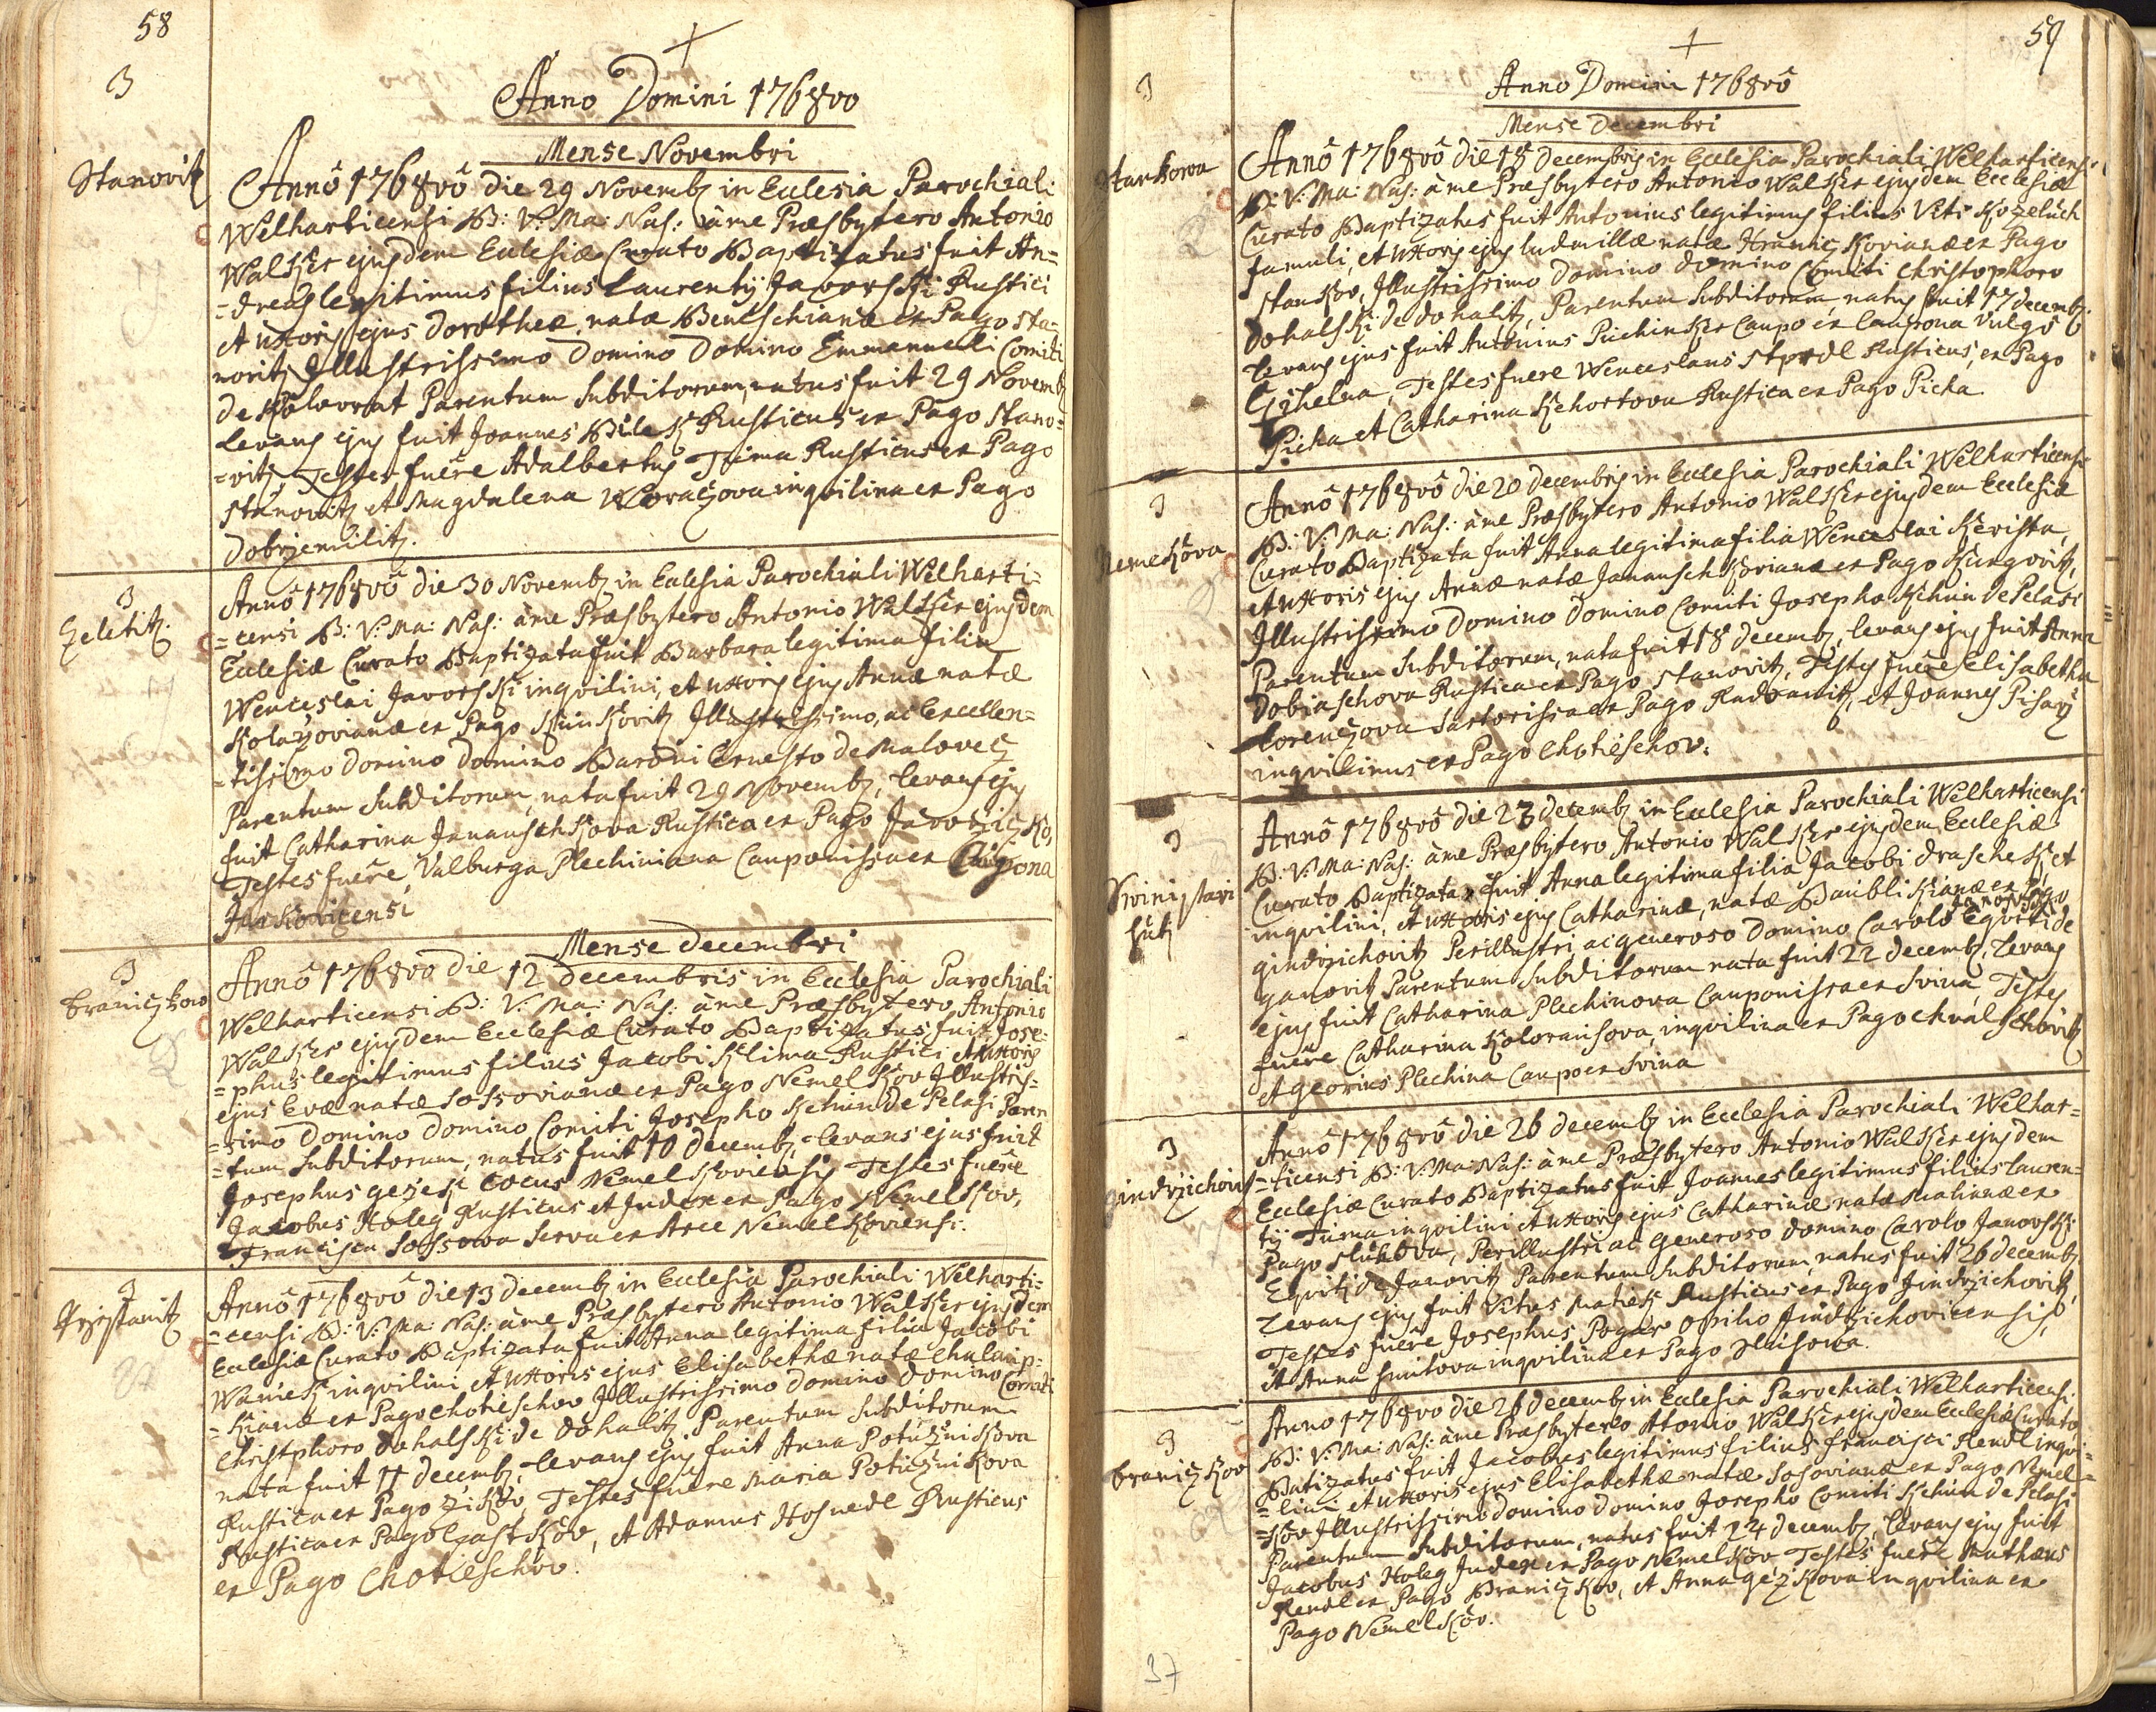 58
3
Anno Domini 1768vo
Mense Novembri
Stanovitz
Annô 1768vô die 29 Novemb; in Eclesia Parochiali
Welharticensi B: V: Ma: Nas: âme Præsbytero Antonio
Walker ejusdem Eclesiæ Curato Baptizatus fuit An=
=dreas legitimus filius Laurentij Javorski Rustici
et uxoris ejus Dorotheæ, natæ Beneschianæ ex Pago Sta=
novitz Illustrissimo Domino Domino Emmanueli Comiti
de Kolovrat Parentum Subditorum, natus fuit 29 Novemb;
Levans ejus fuit Joannes Bilek Rusticus ex Pago Stano=
=vitz Testes fuêre Adalbertus Tuma Rusticus ex Pago
Stanovitz et Magdalena Woraczova inquilina ex Pago
Dobrzemilitz.
3
Czeletitz.
Annô 1768vô die 30 Novemb; in Eclesia Parochiali Welharti=
=censi B: V: Ma: Nas: âme Præsbytero Antonio Walker ejusdem
Ecclesiæ Curato Baptizata fuit Barbara legitima filia
Wenceslai Javorski inquilini, et uxoris ejus Annæ natæ
Kolarzovianæ ex Pago Kunkovitz Illustrissimo, ac Excellen=
=tissimo Domino Domino Baroni Ernesto de Malovecz
Parentum Subditorum, nata fuit 29 Novemb; Levans ejus
fuit Catharina Janauschkova Rustica ex Pago Javorziczko,
Testes fuêre, Valburga Plechiniana Cauponissa ex Caupona
Jankovicensi
Mense Decembri
3
Braniczkow
Annô 1768vo die 12 Decembris in Ecclesia Parochiali
Welharticensi B: V: Ma: Nas: âme Præsbytero Antonio
Walker ejusdem Ecclesiæ Curato Baptizatus fuit Jose=
=phus legitimus filius Jacobi Klima Rustici et uxoris
ejus Evæ natæ Sossovianæ ex Pago Nemelkov Illustris=
=simo Domino Domino Comiti Josepho Kchim de Pelasi Paren
=tum Subditorum, natus fuit 10 Decemb; Levans ejus fuit
Josephus Gezek Cocus Nemelkoviensis Testes fuêre
Jacobus Holeg Rusticus et Judex ex Pago Nemelkov,
Francisca Sossowa Serva ex Arce Nemelkoviensi.
3
Krzistanitz
Annô 1768vô die 13 Decemb; in Eclesia Parochiali Welharti=
=censi B: V: Ma: Nas: âme Præsbytero Antonio Walker ejusdem
Eclesiæ Curato Baptizata fuit Anna legitima filia Jacobi
Waniek inquilini et uxoris ejus Elisabethæ natæ Chalaup=
=kianæ ex Pago Chotieschov Illustrissimo Domino Domino Comiti
Christphoro Dohalski de Dohalitz Parentum Subditorum
nata fuit 11 Decemb; Levans ejus fuit Anna Potuznikova
Rustica ex Pago Zikov, Testes fuêre Maria Potuznikova
Rustica ex Pago Czastkov, et Adamus Hosnedl Rusticus
ex Pago Chotieschov.
59
3
Anno Domini 1768vô
Mense Decembri
Stankowa
Annô 1768vô die 18 Decembris in Ecclesia Parochiali Welharticensi
B: V: Ma: Nas: âme Præsbytero Antonio Walker ejusdem Ecclesiæ
Curato Baptizatus fuit Antonius legitimus filius Viti Kozeluch
famuli, et uxoris ejus Ludmillæ natæ Hranickovianæ ex Pago
Stankov, Illustrissimo Domino Domino Comiti Christophoro
Dohalski de Dohalitz, Parentum Subditorum, natus fuit 17 Decemb;
Levans ejus fuit Antonius Puchinker Caupo ex Caupona vulgo
Czihelna, Testes fuere Wenceslaus Rusticus, ex Pago
Picha et Catharina Kchortova Rustica ex Pago Picha
3
Nemelkova
Annô 1768vô die 20 Decembris in Ecclesia Parochiali Welharticensi
B: V: Ma: Nas: âme Præsbytero Antonio Walker ejusdem Ecclesiæ
Curato Baptizata fuit Anna legitima filia Wenceslai Krista,
et uxoris ejus Annæ natæ Janauschkovianæ ex Pago Kungovitz,
Illustrissimo Domino Domino Comiti Josepho Kchim de Pelasi
Parentum Subditorum, nata fuit 18 Decemb; Levans ejus fuit Anna
Dobiaschova Rustica ex Pago Stanovitz, Testes fuêre Elisabetha
Lorenczova Sartorissa ex Pago Radvanitz, et Joannes Pisarz
inquilinus ex Pago Chotieschov.
3
Svini stari
hutj
Annô 1768vô die 23 Decemb; in Eclesia Parochiali Welharticensi
B: V: Ma: Nas: âme Præsbytero Antonio Walker ejusdem Eclesiæ
Curato Baptizata fuit Anna legitima filia Jacobi Draschek, et
inquilini, et uxoris ejus Catharinæ, natæ Baublikianæ ex Pago
Gindrzichovitz Perillustri ac generoso Domino Carolo Janovski Equiti de
Ganovitz Parentum Subditorum nata fuit 22 Decemb; Levans
ejus fuit Catharina Plechinova Cauponissa ex Svina, Testes
fuêre Catharina Koloransova, inquilina ex Pago Chvalschovitz
et Georius Plechina Caupo ex Svina
3
Gindrzichovitz
Annô 1768vô die 26 Decemb; in Ecclesia Parochiali Welhar=
=ticensi B: V: Ma: Nas: âme Præsbytero Antonio Walker ejusdem
Ecclesiæ Curato Baptizatus fuit Joannes legitimus filius Lauren=
tij Tuma inquilini et uxoris ejus Catharinæ natæ Malinæ ex
Pago Hluhova, Perillustri ac Generoso Domino Carolo Janovski
Equiti de Janovitz Parentum Subditorum, natus fuit 26 Decemb;
Levans ejus fuit Vitus Matiek Rusticus ex Pago Jindrzichovitz,
Testes fuêre Josephus Pogar Opilio Jindrzichovicensis,
et Anna Smitova inquilina ex Pago Hluhowa.
3
Braniczkov
Anno 1768vo die 26 Decemb; in Eclesia Parochiali Welharticensi
B: V: Ma: Nas: âme Præsbytero Atonio Walker ejusdem Eclesiæ Curato,
Batizatus fuit Jacobus legitimus filius Francisci Rendl inqvi=
=lini et uxoris ejus Elisabethæ natæ Sosovianæ ex Pago Nemel=
=kov Illustrissimo Domino Domino Josepho Comiti Kchim de Pelasi
Parentum Subditorum, natus fuit 24 Decemb; Levans ejus fuit
Jacobus Holeg Judex ex Pago Nemelkov Testes fuêre Mathæus
Rendl ex Pago Braniczkov, et Anna Gezkova inquilina ex
Pago Nemelkov.
37